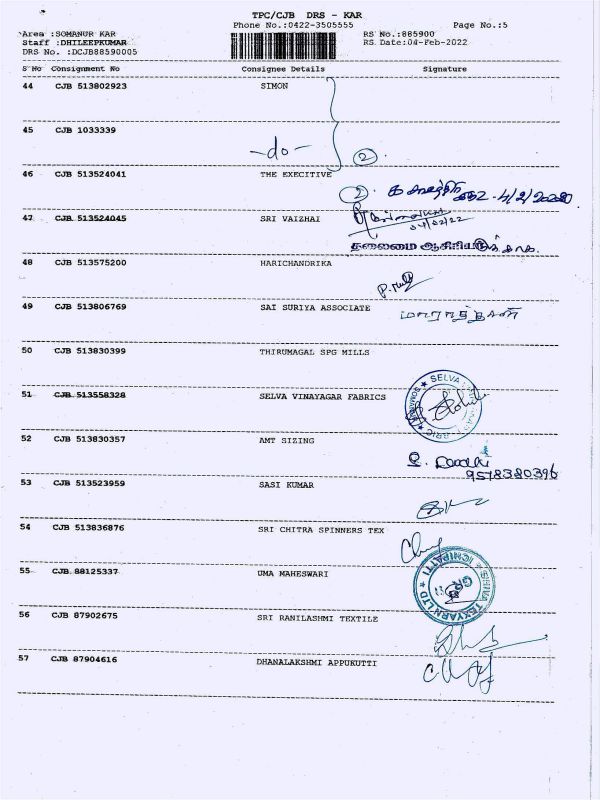 TPC/CJB DRS - KAR
Phone No.:0422-3505555 Page No.:5
Area :SOMANUR KAR RS No.:885900
Staff :DHILEEPKUMAR RS Date:04-Feb-2022
DRS No. :DCJB88590005
S No Consignment No Consignee Details Signature
44 CJB 513802923 SIMON
45 CJB 1033339
-do- 2
46 CJB 513524041 THE EXECITIVE
2
47 CJB 513524045 SRI VAIZHAI
04/02/22
தலைமை ஆசிரியருக்காக.
48 CJB 513575200 HARICHANDRIKA
49 CJB 513806769 SAI SURIYA ASSOCIATE
50 CJB 513830399 THIRUMAGAL SPG MILLS
51 CJB 513558328 SELVA VINAYAGAR FABRICS
SELVA
52 CJB 513830357 AMT SIZING
9578380396
53 CJB 513523959 SASI KUMAR
54 CJB 513836876 SRI CHITRA SPINNERS TEX
55 CJB 88125337 UMA MAHESWARI
SHIVA TEXYARN LTD
56 CJB 87902675 SRI RANILASHMI TEXTILE
57 CJB 87904616 DHANALAKSHMI APPUKUTTI